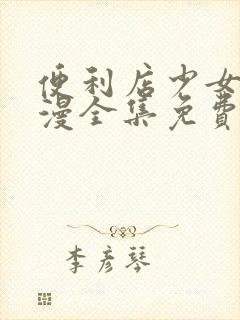 便利店少女
漫全集免費
李彦琴